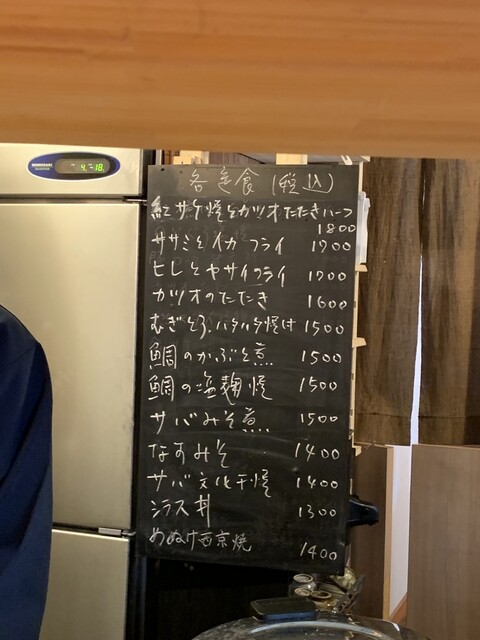 HOSHIZAKI
-4 -18
各定食 (税込)
紅サケ焼とカツオたたきハーフ
1800
ササミとイカフライ 1700
ヒレとヤサイフライ 1700
カツオのたたき 1600
むぎとろ、ハタハタ焼付 1500
鯛のかぶと煮 1500
鯛の塩麹焼 1500
サバみそ煮 1500
なすみそ 1400
サバ文化干焼 1400
シラス丼 1300
めぬけ西京焼 1400